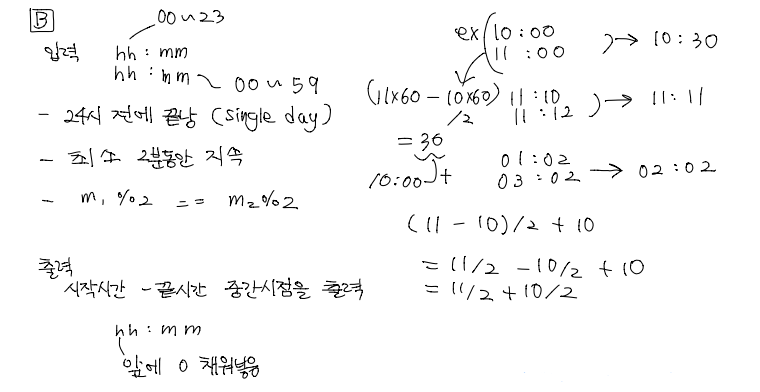 B
00 ~ 23
입력 hh : mm
hh : mm
00 ~ 59
- 24시 전에 끝남 (single day)
- 최소 2분동안 지속
- m₁ %2 == m₂%2
출력
시작시간 - 끝시간 중간시점을 출력
hh : mm
앞에 0 채워넣음
ex 10 : 00
11 : 00
→ 10 : 30
(11x60 - 10x60)
/2
= 30
10:00 +
11 : 10
11 : 12
→ 11 : 11
01 : 02
03 : 02 → 02 : 02
(11 - 10)/2 + 10
= 11/2 - 10/2 + 10
= 11/2 + 10/2